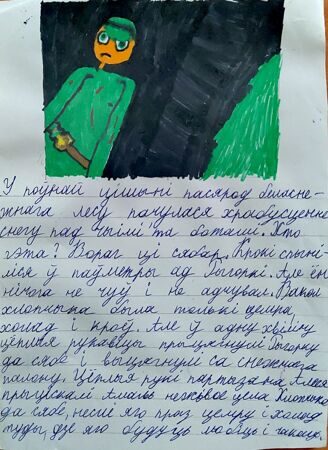 У поўнай цішыні пасярод беласне-
жнага лесу пачулася храбусценне
снегу пад чыімі та ботамі. Хто
гэта? Вораг ці сябар. Крокі спыні-
ліся ў паўметры ад Рыгоркі. Але ён
нічога не чуў і не адчуваў. Вакол
хлопчыка была толькі цемра,
холад і кроў. Але ў адну хвіліну
цёплыя рукавіцы прыцягнулі Рыгорку
да сябе і выцягнулі са снежнага
палону. Цёплыя рукі партызана Алеся
прыціскалі амаль нежывое цела хлопчыка
да сябе, неслі яго праз цемру і холад
туды, дзе яго будуць любіць і чакаць.